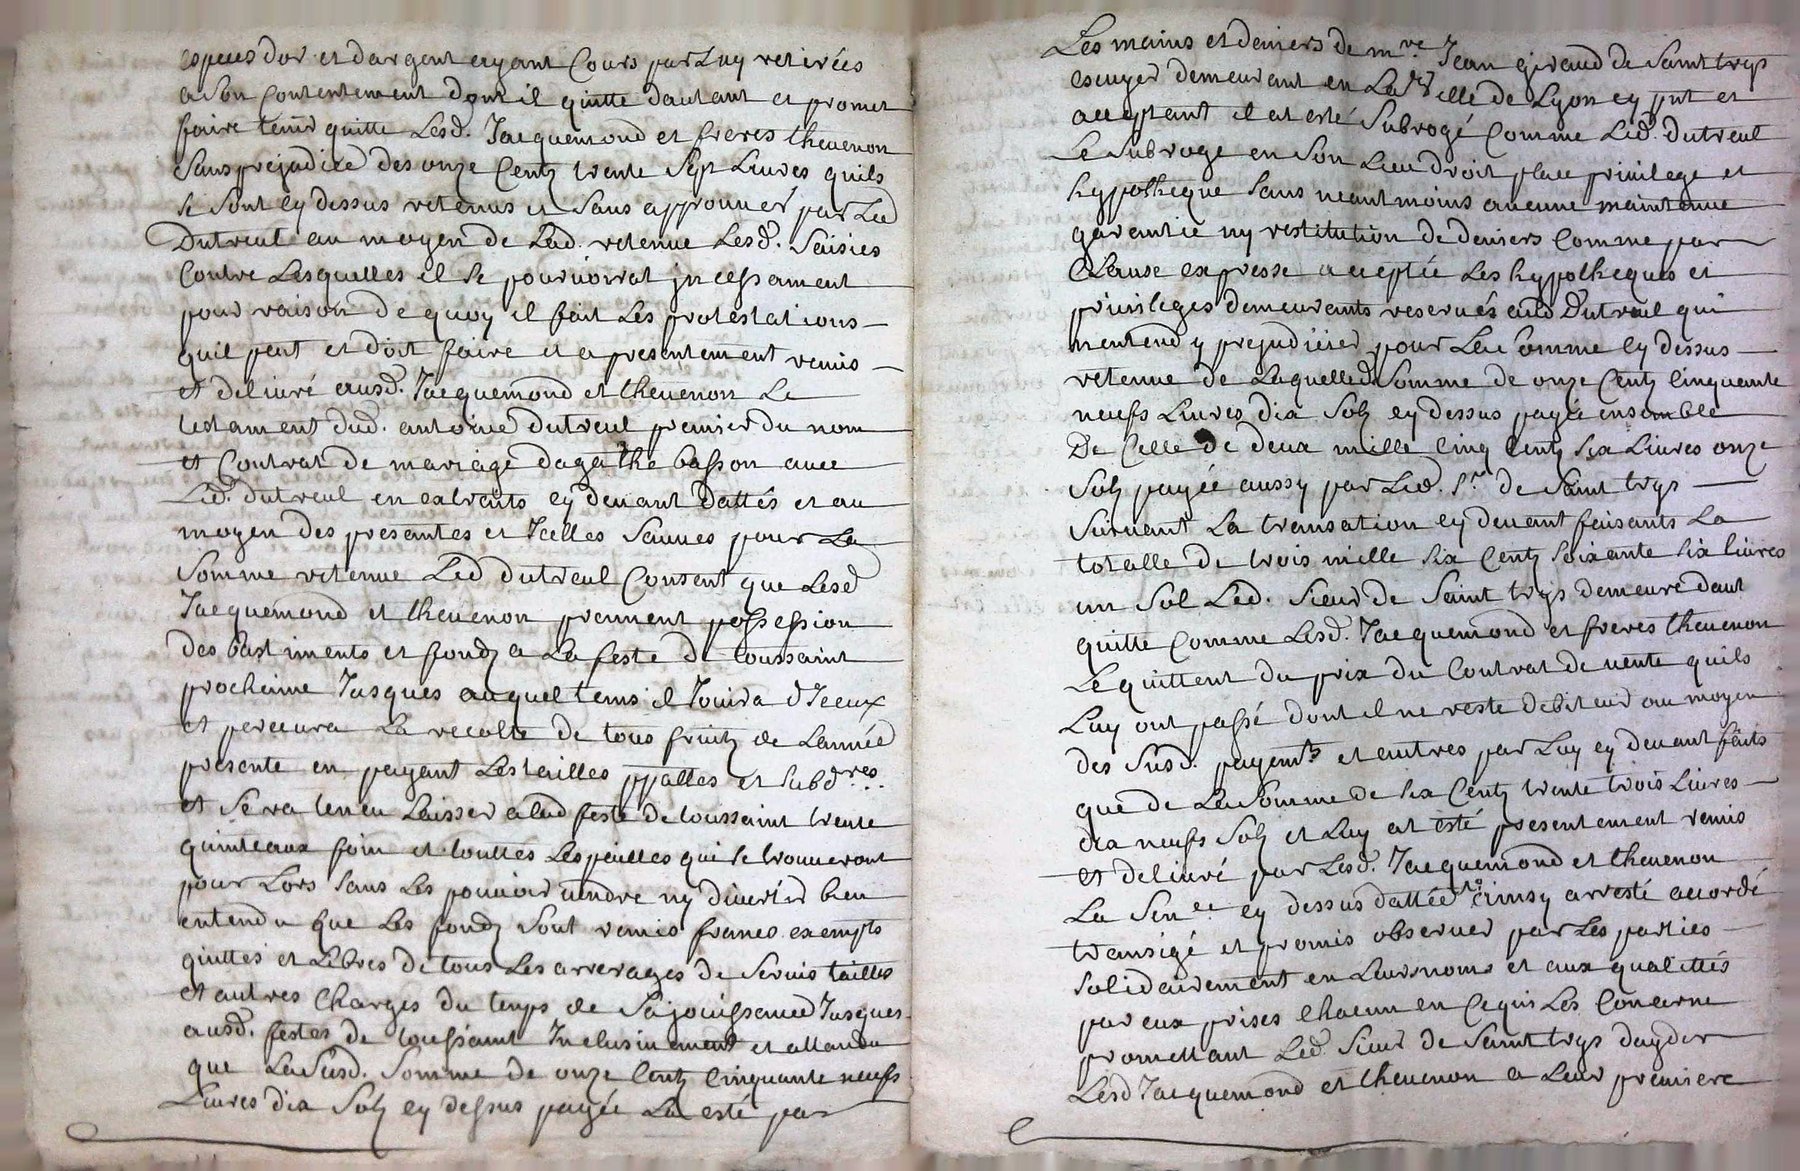 especes dor et dargent ayant Cours par Luy retirées
a Son Contentement dont il quitte dautant et promet
faire tenir quitte Lesd. Jacquemond et freres thevenon
Sans prejudice des onze Centz trente Sept Livres quils
Se Sont cy dessus retenus et Sans approuver par Led
Dutreul au moyen de Lad. retenue Lesd. Saisies
Contre Lesquelles il Se pourvoirrat incessament
pour raison de quoy il fait Les protestations
quil peut et doit faire et a presentement remis
et delivré ausd. Jacquemond et thevenon Le
testament dud. antoine dutreul premier du nom
et Contrat de mariage dagathe basson avec
Led. dutreul en extraits cy devant dattés et au
moyen des presantes et Jcelles Sauves pour La
Somme retenue Led dutreul Consent que Lesd
Jacquemond et thevenon prennent possession
des bastiments et fondz a La feste de toussaint
prochaine Jusques auquel tems il Jouira d'Jceux
et percevra La recolte de tous fruitz de Lannéé
presente en payant Les tailles ppalles et Subd.res
et Sera tenu Laisser a lad feste de toussaint trente
quinteaux foin et touttes Les pailles qui Se trouveront
pour Lors Sans Les pouvoir vendre ny divertir bien
entendu que Les fondz Sont remis francs exempts
quittes et Libres de tous Les arrerages de Servis tailles
et autres Charges du temps de Sa jouissance Jusques
ausd. festes de toussaint Jnclusivement et attandu
que La Susd. Somme de onze Centz Cinquante neufs
Livres dix Solz cy dessus payée La esté par
Les mains et deniers de m.re Jean giraud de Saint trys
escuyer demeurant en Lad. ville de Lyon cy pnt et
acceptant il at esté Subrogé Comme Led. dutreul
Le Subroge en Son Lieu droit place privilege et
hypotheque Sans neantmoins aucune maintenue
garentie ny restitution de deniers Comme par
Clause expresse acceptée Les hypotheques et
privileges demeurants reservés aud Dutreul qui
nentend y prejudicier pour La Somme cy dessus
retenue de Laquelle d. Somme de onze Centz Cinquante
neufs Livres dix Solz cy dessus payée ensemble
De Celle de deux mille Cinq Centz Six Livres onze
Solz payée aussy par Led. S.r de Saint trys
Suivant La transation cy devant faisants La
totalle de trois mille Six Centz Soixante Six livres
un Sol Led. Sieur de Saint trys demeure daut
quitte Comme Lesd. Jacquemond et freres thevenon
Le quittent du prix du Contrat de vente quils
Luy ont passé dont il ne reste debiteur au moyen
des Susd. payem.ts et autres par Luy cy devant faits
que de La Somme de Six Centz trente trois Livres
dix neufs Solz et Luy at esté presentement remis
et delivré par Lesd. Jacquemond et thevenon
La Sen.ce cy dessus dattée ainsy arresté accordé
transigé et promis observer par Les parties
Solidairement en Leurs noms et aux qualittés
par eux prises Chacun en Ce qui Les Concerne
promettant Led. Sieur de Saint trys dayder
Lesd Jacquemond et thevenon a Leur premiere